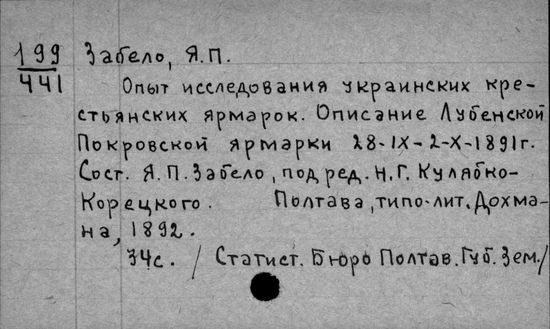 199 Забело, Я.П.
441
Опыт исследования украинских кре-
стьянских ярмарок. Описание Лубенской
Покровской ярмарки 28-IX-2-X-1891г.
Сост. Я.П.Забело, под ред. Н.Г. Кулябко-
Корецкого. Полтава, типо-лит. Дохма-
на, 1892.
34с. / Статист. Бюро Полтав. Губ. Зем./